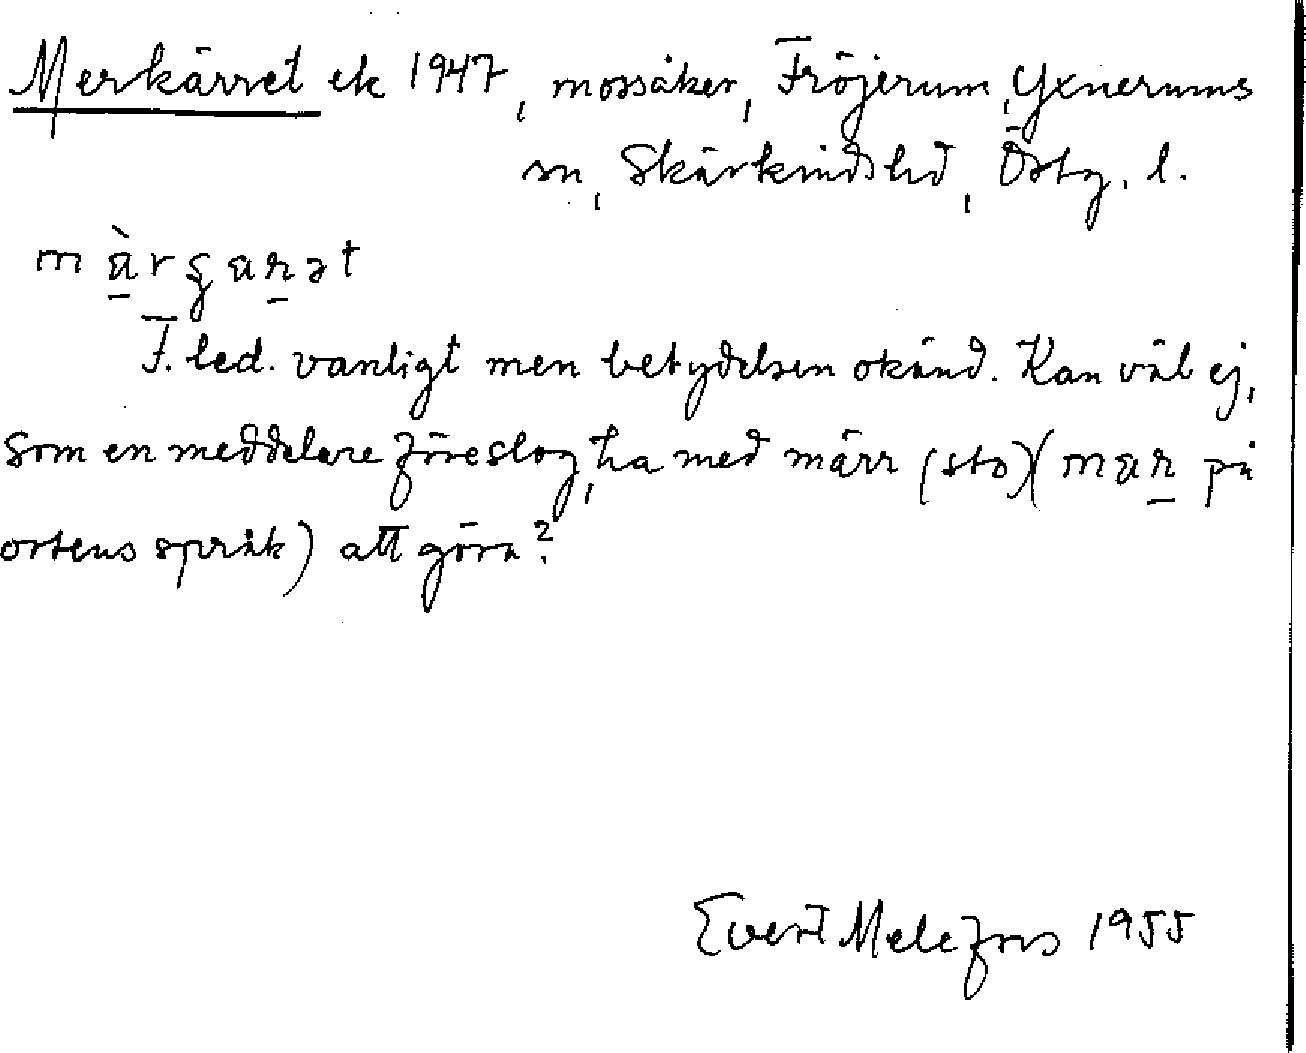 Merkärret ek 1947, mossåker, Fröjerum, Yxnerums
sn, Skärkinds hd, Östg. l.
màrgaꞃət
F. led. vanligt men betydelsen okänd. Kan väl ej,
som en meddelare föreslog, ha med märr (sto) (maꞃ på
ortens språk) att göra?
Evert Melefors 1955